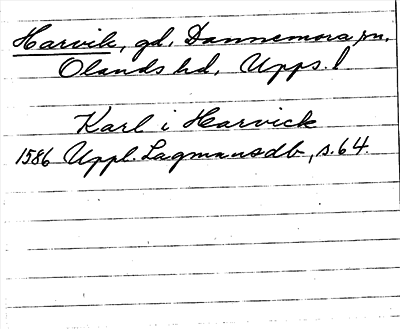 Harvik, gd, Dannemora sn,
Olands hd, Upps. l
Karl i Harvick
1586 Uppl. Lagmansdb, s. 64.